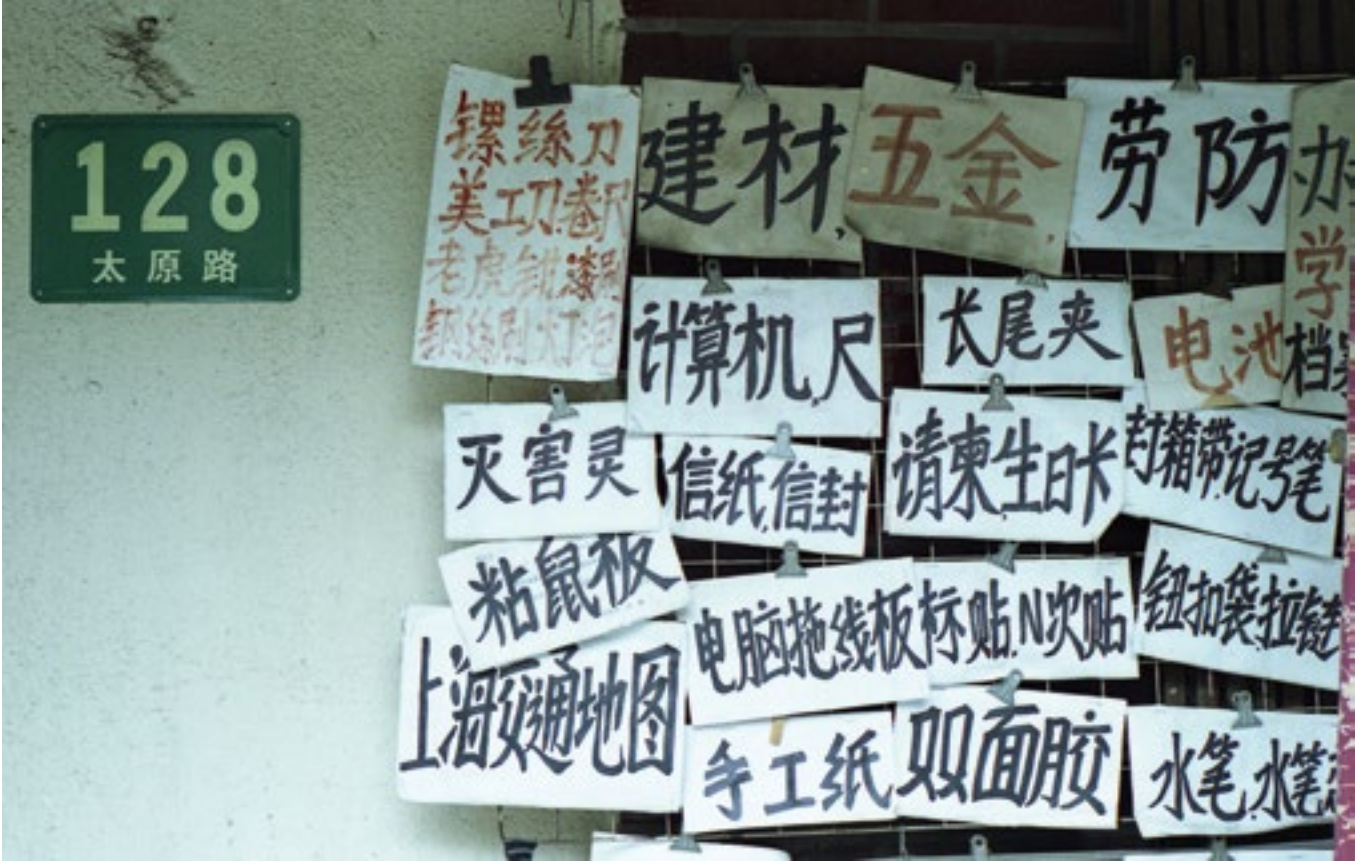 128
太原路
镙絲刀
美工刀.卷尺
老虎钳漆刷
钢絲刷灯泡
建材,
五金,
劳防
办
学
档案
计算机,尺
长尾夹
电池
灭害灵
信纸.信封
请柬生日卡
封箱带.记号笔
粘鼠板
电脑拖线板
标贴.N次贴
钮扣袋.拉链
上海交通地图
手工纸
双面胶
水笔.水笔芯